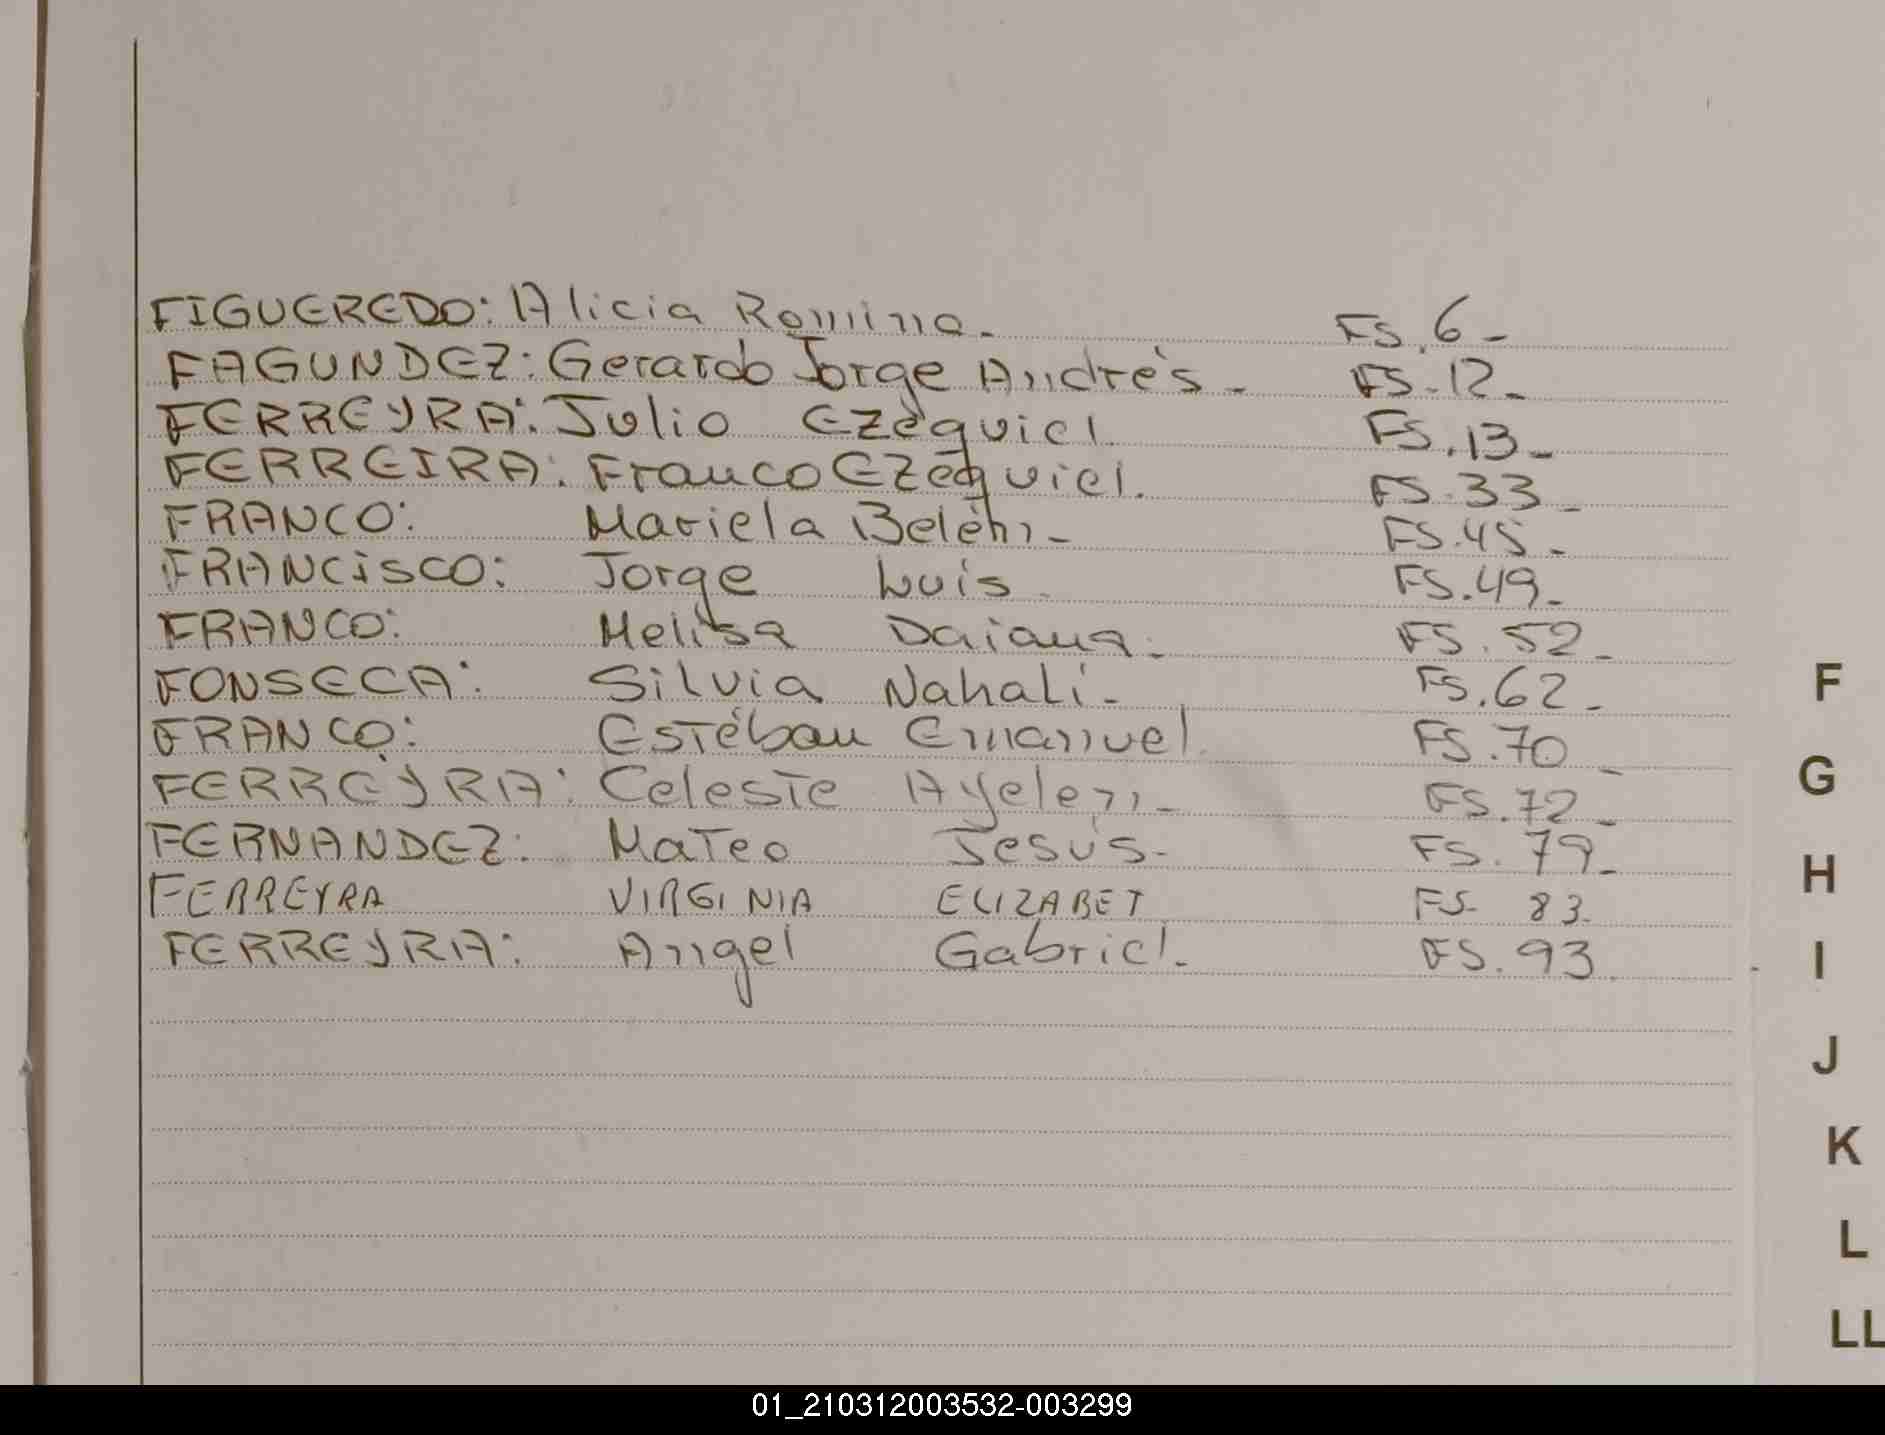 FIGUEREDO: Alicia Romina- FS.6-
FAGUNDEZ: Gerardo Jorge Andrés- FS.12-
FERREYRA: Julio Ezequiel. FS.13-
FERREIRA: Franco Ezequiel. FS.33-
FRANCO: Mariela Belén- FS.45-
FRANCiSCO: Jorge Luis. FS.49-
FRANCO: Melisa Daiana. FS.52-
FONSECA: Silvia Nahali- FS.62-
FRANCO: Estéban Emanuel. FS.70-
FERREYRA: Celeste Ayelen- FS.72-
FERNANDEZ: Mateo Jesús- FS.79-
FERREYRA VIRGINIA ELIZABET FS- 83-
FERREYRA: Angel Gabriel- FS.93.
F
G
H
I
J
K
L
LL
01_210312003532-003299